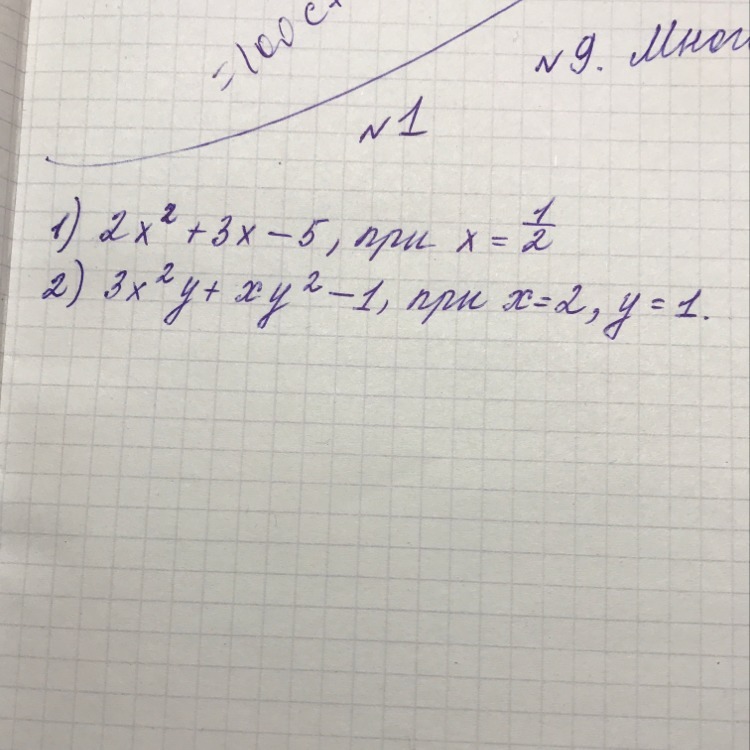 =100 с
№9. Мног
№1
1) 2x² + 3x - 5, при x = 1/2
2) 3x²y + xy² - 1, при x=2, y = 1.